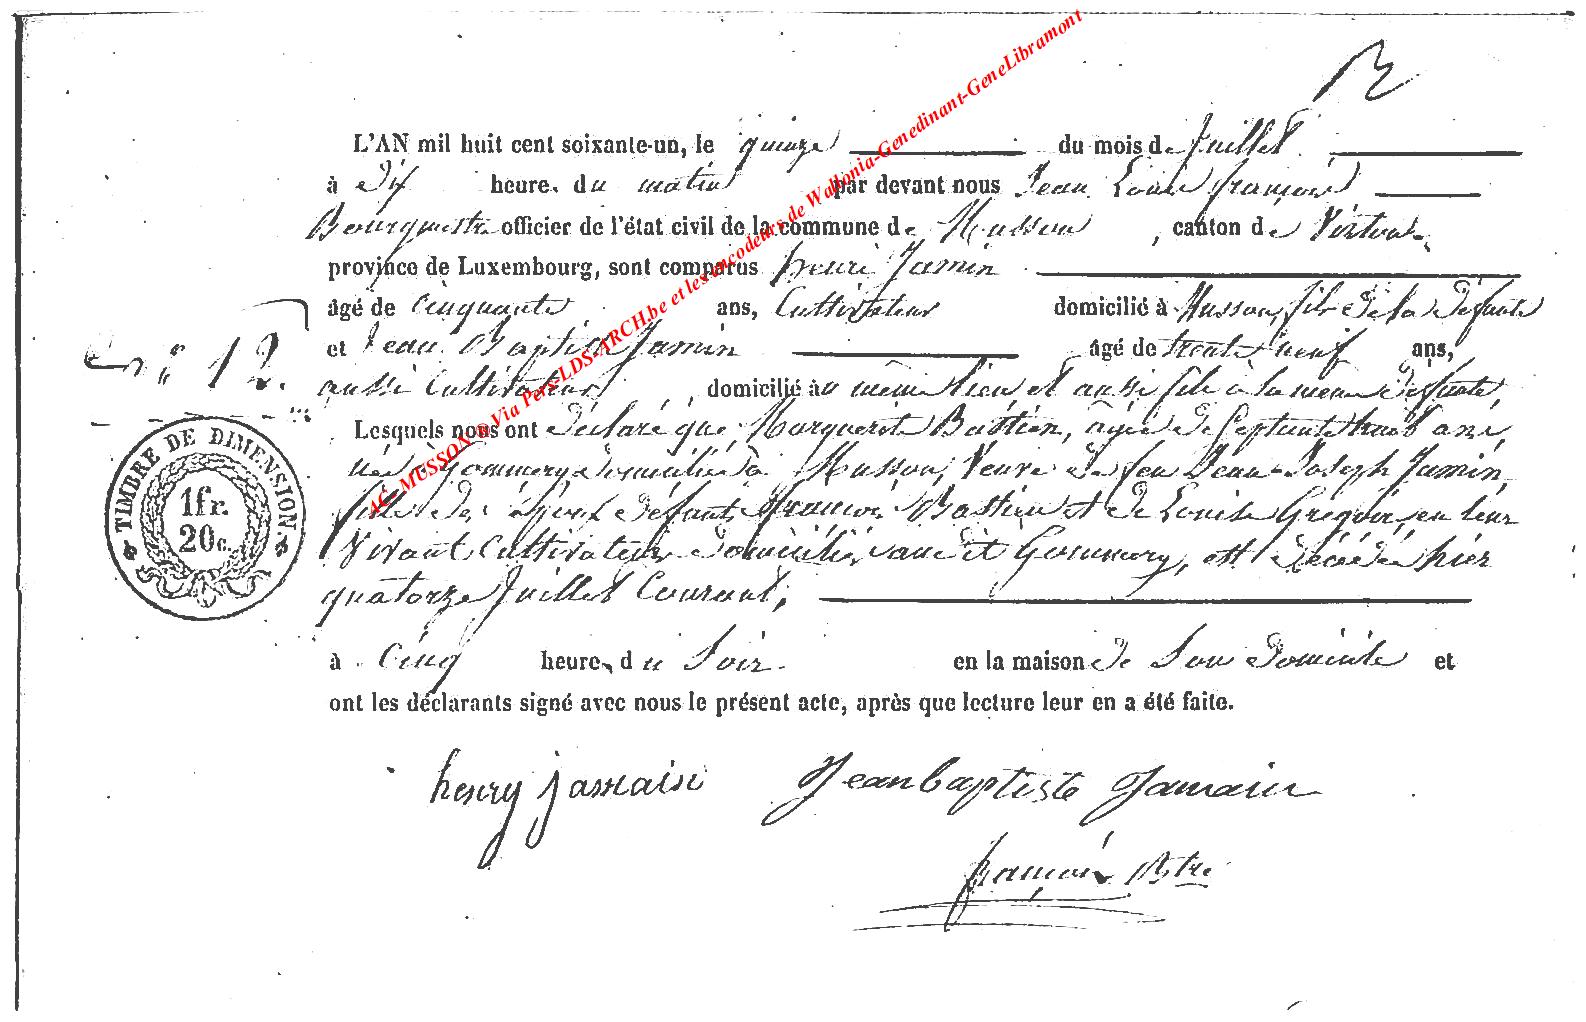 L'AN mil huit cent soixante-un, le quinze du mois de Juillet
à dix heures du matin par devant nous Jean Louis françois
Bourgmestre officier de l'état civil de la commune de Musson, canton de Virton
province de Luxembourg, sont comparus henri Jamin
âgé de cinquante ans, Cultivateur domicilié à Musson, fils de la défunte
N° 12.
et Jean Baptiste Jamin âgé de trente neuf ans,
aussi Cultivateur, domicilié au même lieu et aussi fils à la même défunte,
Lesquels nous ont déclaré que Marguerite Bastien, agée de Septante huit ans,
née à Gommery domiciliée à Musson, Veuve de feu Jean-Joseph Jamin,
fille des époux défunts françois Bastien et de Louise Grégoir, en leur
Vivant Cultivateurs domiciliés au dit Gommery, est décédée hier
quatorze Juillet Courant,
à Cinq heures du Soir en la maison de Son domicile et
ont les déclarants signé avec nous le présent acte, après que lecture leur en a été faite.
henry jamain Jean baptiste Jamain
françois Bstre
TIMBRE DE DIMENSION
1fr.
20c.
AC-MUSSON @ Via Pers-LDS-ARCH.be et les encodeurs de Wallonia-Genedinant-GeneLibramont